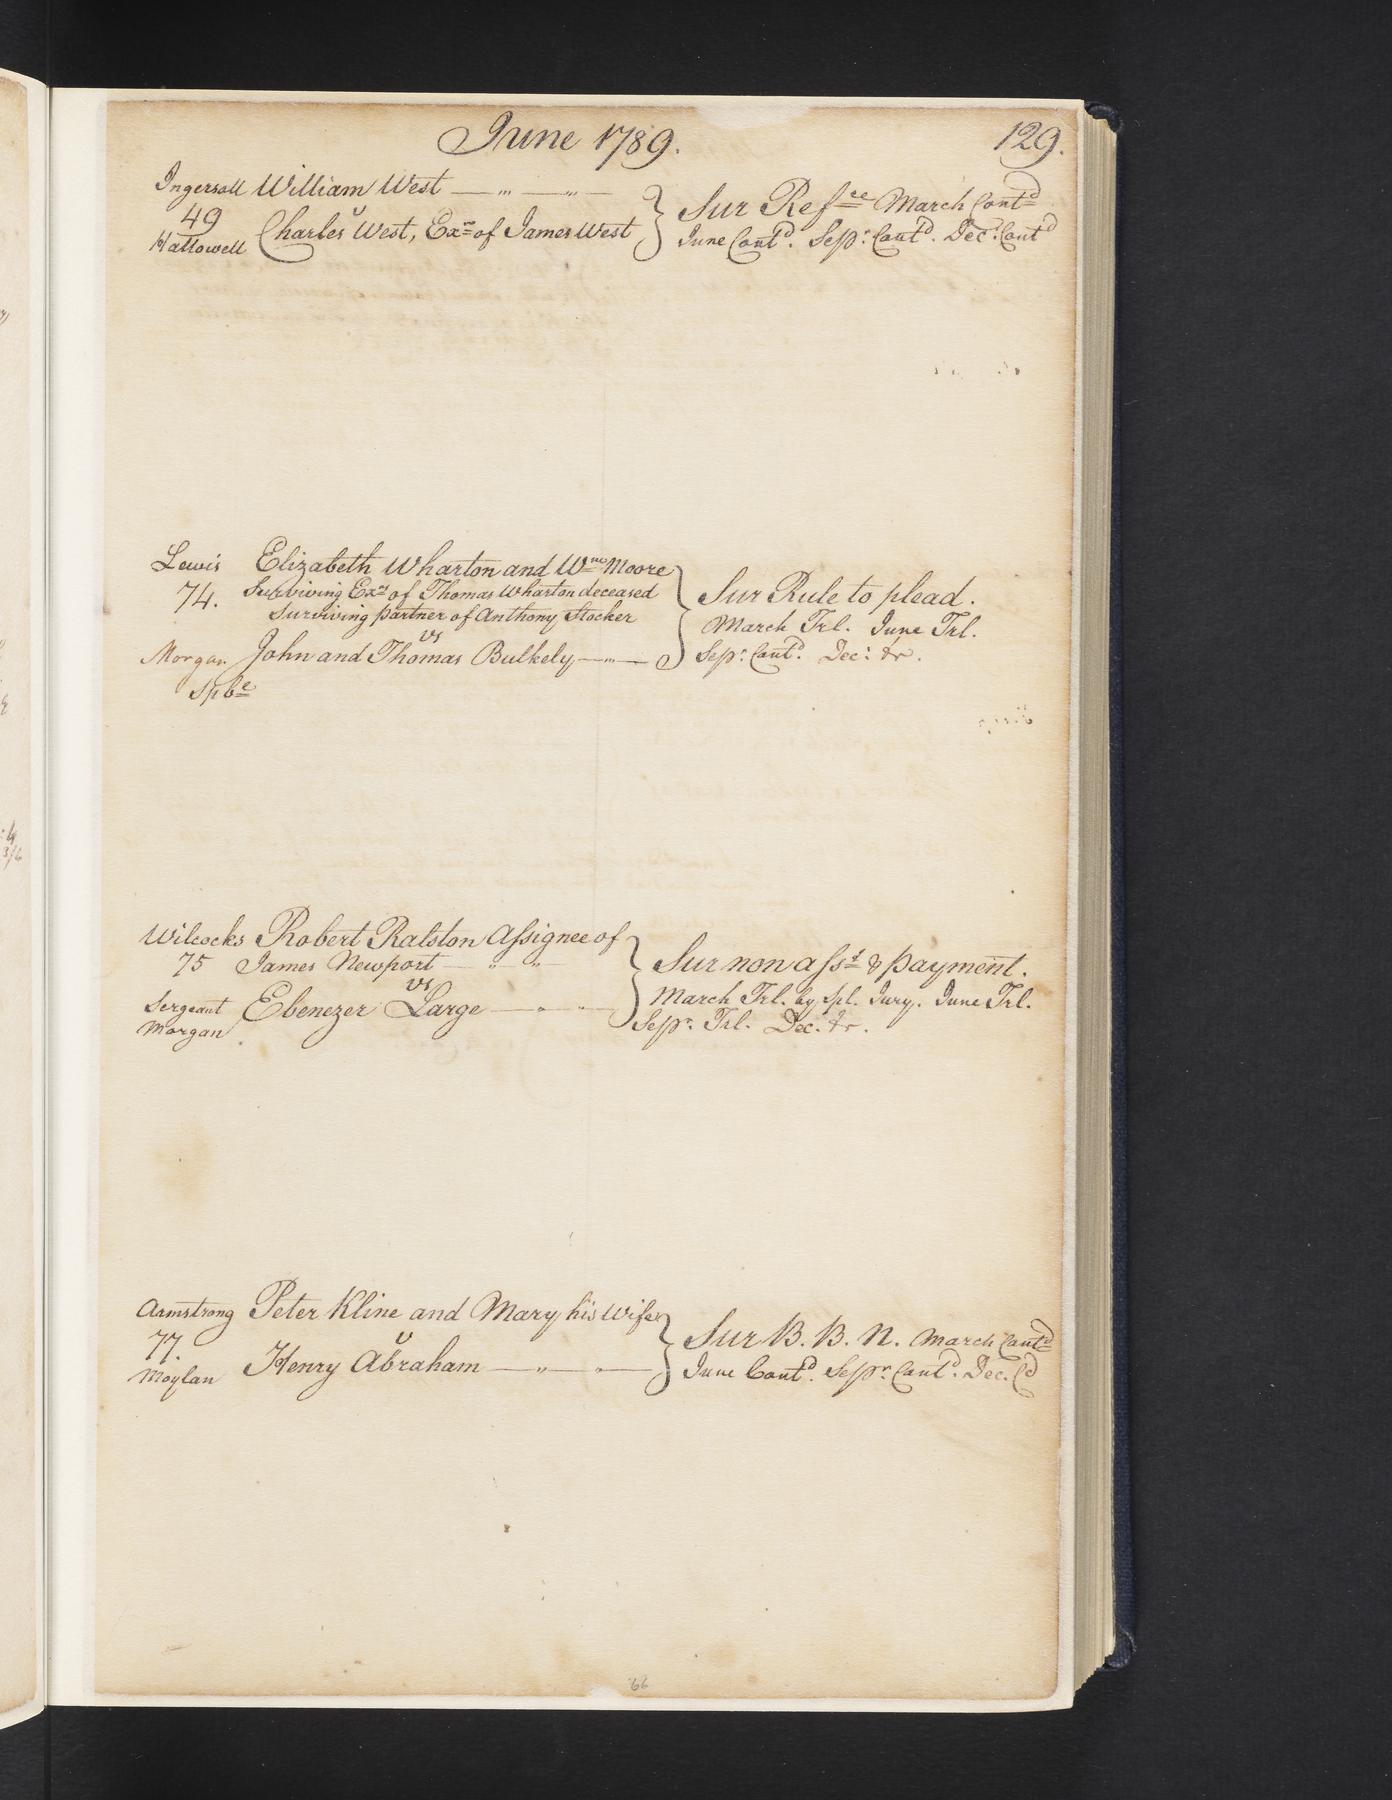 June 1789. 129.
Ingersoll William West
49 v
Hallowell Charles West, Exr of James West
Sur Refce March Contd
June Contd. Sepr: Contd. Decr: Contd
Lewis Elizabeth Wharton and Wm Moore
74. Surviving Exrs of Thomas Wharton deceased
Surviving partner of Anthony Stocker
vs
Morgan John and Thomas Bulkely
Spbe
Sur Rule to plead.
March Trl. June Trl.
Sepr: Contd. Decr: &c.
Wilcocks Robert Ralston Assignee of
75 James Newport
vs
Sergeant Ebenezer Large
Morgan
Sur non asst & payment.
March Trl. by Spl. Jury. June Trl.
Sepr. Trl. Dec. &c.
Armstrong Peter Kline and Mary his Wife
77. v
Moylan Henry Abraham
Sur B. B. N. March Contd
June Contd. Sepr. Contd. Dec. Cd
66